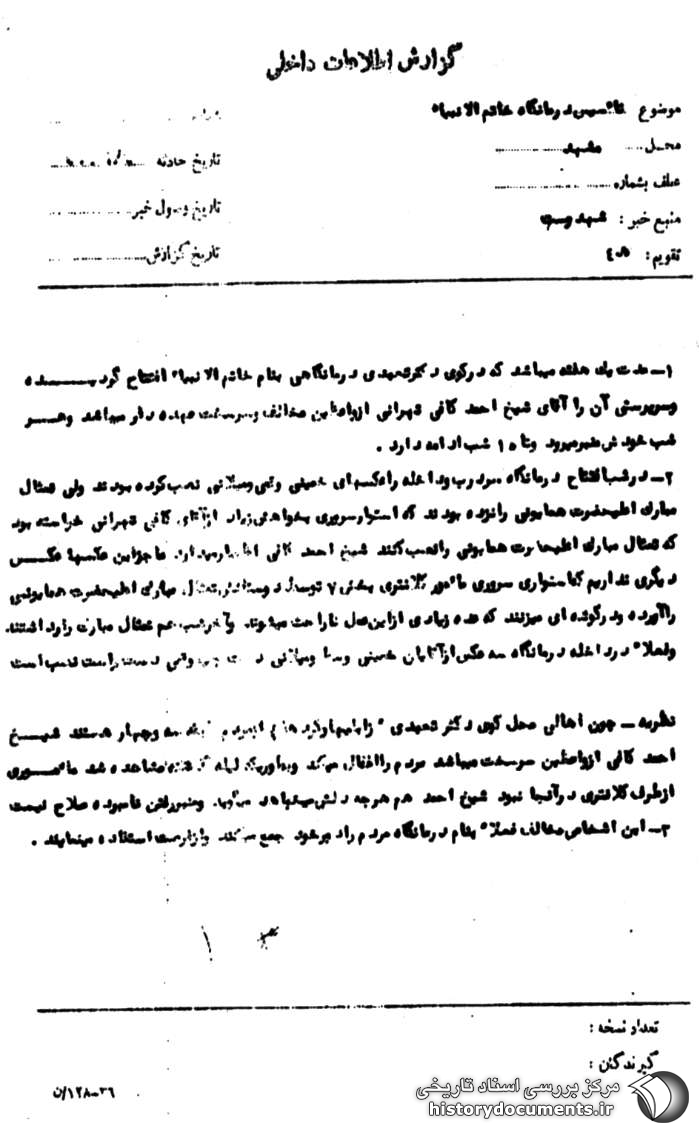 گزارش اطلاعات داخلی
موضوع تاسیس درمانگاه خاتم الانبیاء
محل مشهد
عطف بشماره
منبع خبر : شهد وست
تقویم :
تاریخ حادثه
تاریخ وصول خبر
تاریخ گزارش
۱ــ مدت یك هفته میباشد که در کوی دکتر تعبدی درمانگاهی بنام خاتم الانبیاء افتتاح گردیــــــده
وسرپرستی آن را آقای شیخ احمد کافی تهرانی ازواعظین مخالف وسرسخت عهده دار میباشد وهــــر
شب خودش منبرمیرود وتا ۱۵ شب ادامه دارد .
۲ــ درشب افتتاح درمانگاه سردرب وداخله راعکسهای خمینی وقمی ومیلانی نصب کرده بودند ولی تمثال
مبارك اعلیحضرت همایونی رانزده بودند که استوار سروری بخواهش زیاد ازآقای کافی تهرانی خواسته بود
که تمثال مبارك اعلیحضرت همایونی رانصب کنند شیخ احمد کافی اظهارمیدارد ماجزاین عکسها عکـــس
دیگری نداریم که استواری سروری مامور کلانتری بخش ۷ توسط دوستانش تمثال مبارك اعلیحضرت همایونـی
راآورده ودرگوشه ای میزنند که عده زیادی ازاین عمل ناراحت میشوند وآخرشب هم تمثال مبارك رابرداشتند
وفعلا" درداخله درمانگاه سه عکس ازآقایان خمینی وسط ومیلانی دست چپ وقمی دست راست نصب است
نظریه ــ چون اهالی محل کوی دکتر تعبدی هستند شیـــخ
احمد کافی ازواعظین سرسخت میباشد مردم رااغفال میکند وبطوریکه لیله گذشته مشاهده شد مامــوری
ازطرف کلانتری درآنجا نبود شیخ احمد هم هرچه دلش میخواهد میگوید ومنبررفتن نامبرده صلاح نیست
۳ــ این اشخاص مخالف فعلا" بنام درمانگاه مردم رادورخود جمع میکنند وازفرصت استفاده مینمایند .
تعداد نسخه :
گیرندگان :
۳۶ــ۱۲۸/ن
مرکز بررسی اسناد تاریخی
historydocuments.ir